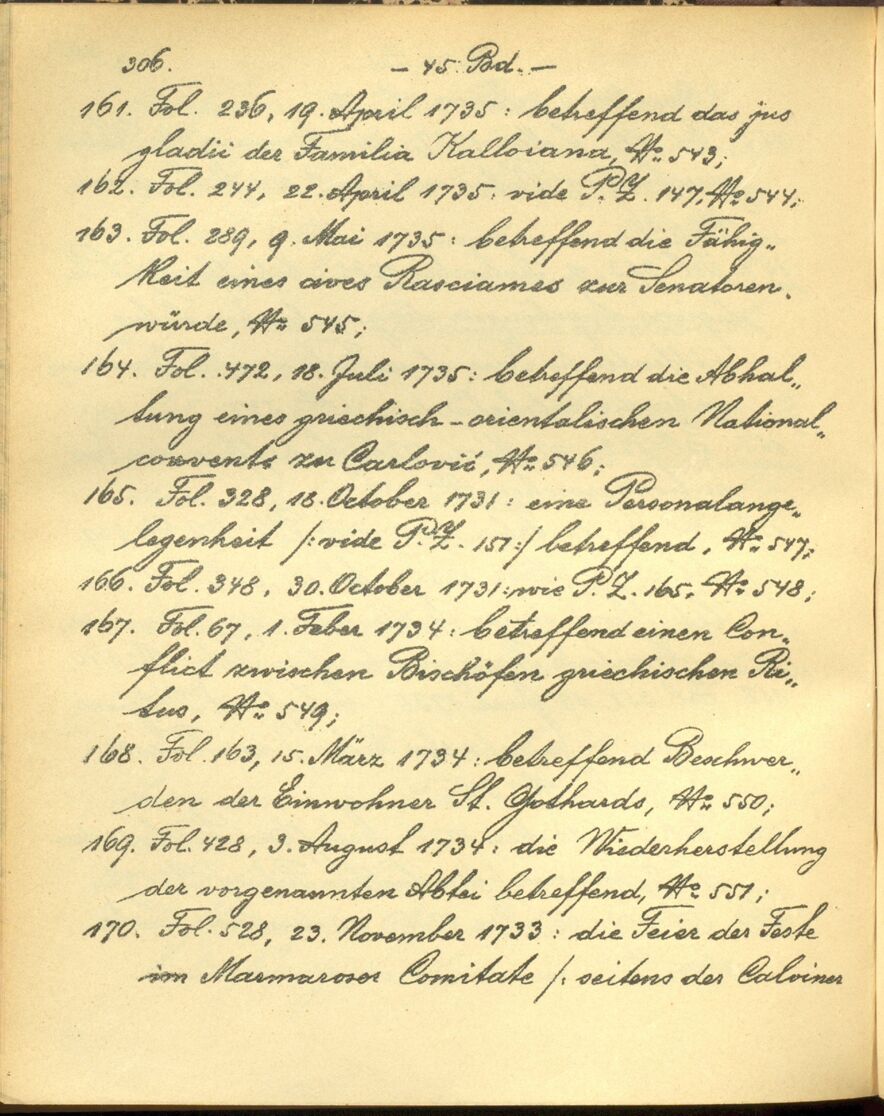 306. – 45. Bd. –
161. Fol. 236, 19. April 1735: betreffend das jus
gladii der Familia Kalloiana, No. 543;
162. Fol. 244, 22. April 1735: vide P.Z. 147, No. 544;
163. Fol. 289, 9. Mai 1735: betreffend die Fähig„
keit eines cives Rasciames zur Senatoren.
würde, No. 545;
164. Fol. 472, 18. Juli 1735: betreffend die Abhal„
tung eines griechisch-orientalischen National„
convents zu Carlović, No. 546;
165. Fol. 328, 18. October 1731: eine Personalange„
legenheit /: vide P.Z. 151:/ betreffend, No. 547;
166. Fol. 348, 30. October 1731: wie P.Z. 165, No. 548;
167. Fol. 67, 1. Feber 1734: betreffend einen Con„
flict zwischen Bischöfen griechischen Ri„
tus, No. 549;
168. Fol. 163, 15. März 1734: betreffend Beschwer„
den der Einwohner St. Gothards, No. 550;
169. Fol. 428, 3. August 1734: die Wiederherstellung
der vorgenannten Abtei betreffend, No. 551;
170. Fol. 528, 23. November 1733: die Feier der Feste
im Marmaroser Comitate /: seitens der Calviner